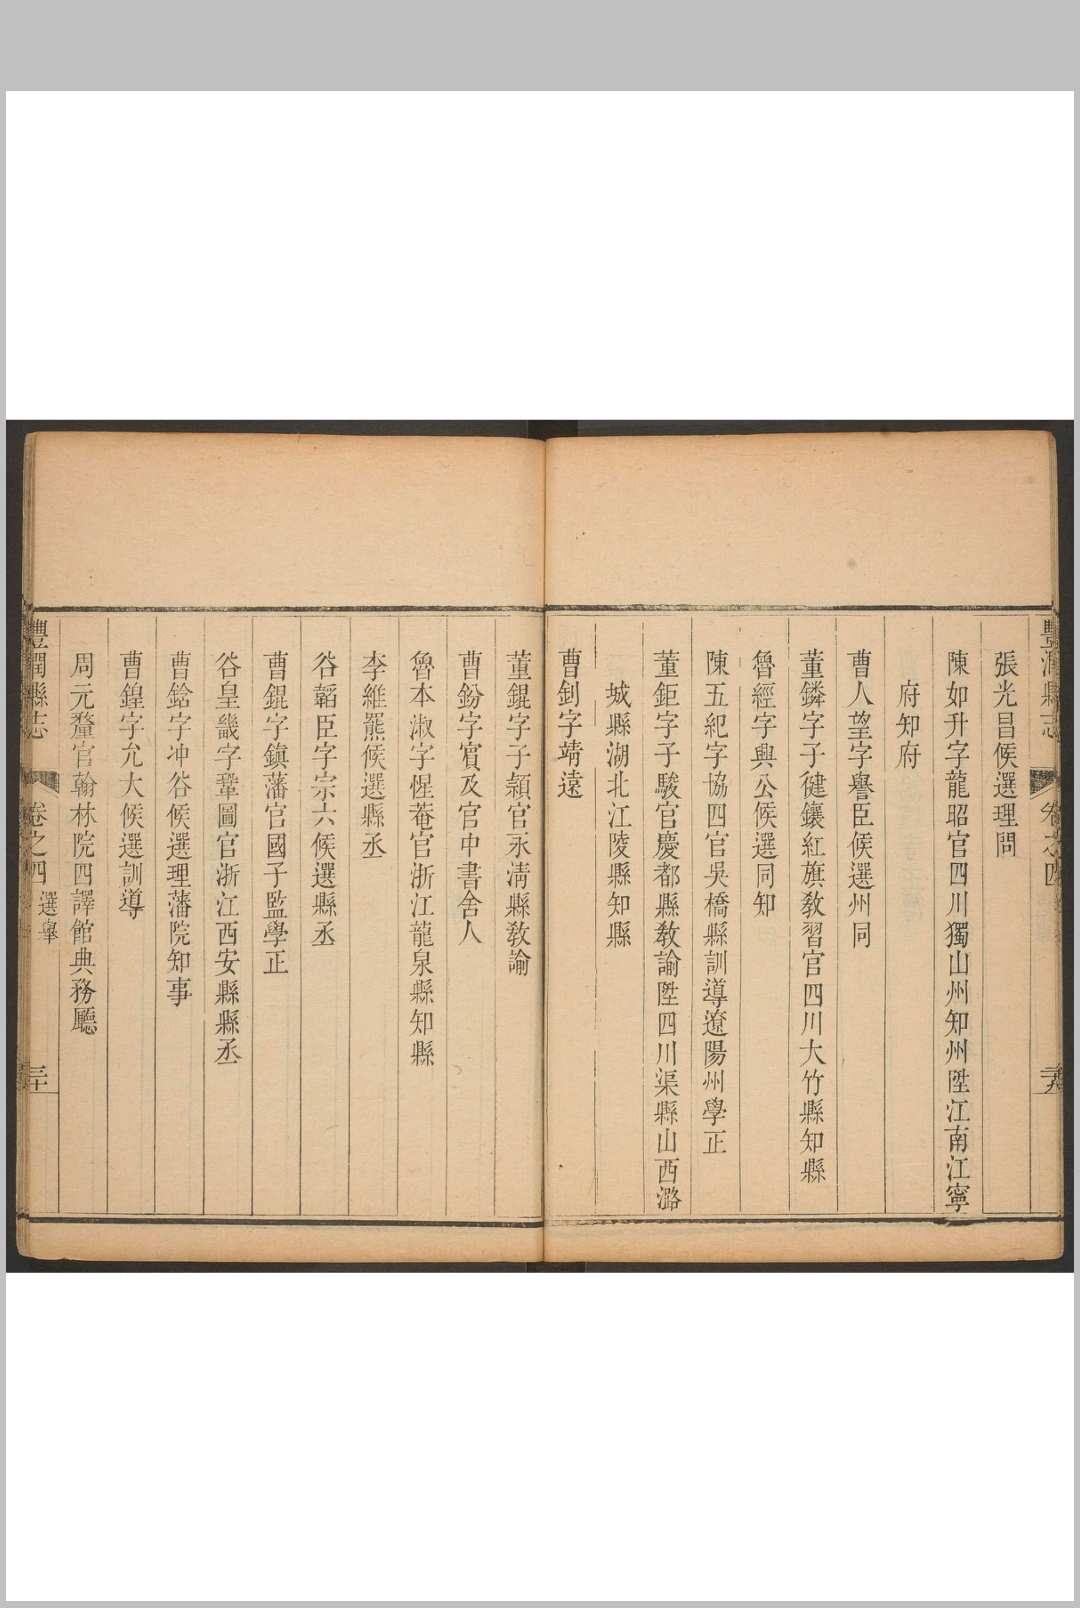 豐潤縣志
卷之四
二十九
張光昌候選理問
陳如升字龍昭官四川獨山州知州陞江南江寧
府知府
曹人望字譽臣候選州同
董鏻字子健鑲紅旗敎習官四川大竹縣知縣
魯經字興公候選同知
陳五紀字協四官吳橋縣訓導遼陽州學正
董鉅字子駿官慶都縣敎諭陞四川渠縣山西潞
城縣湖北江陵縣知縣
曹釗字靖遠
董錕字子穎官永淸縣敎諭
曹鈖字賔及官中書舍人
魯本淑字惺菴官浙江龍泉縣知縣
李維羆候選縣丞
谷韜臣字宗六候選縣丞
曹錕字鎮藩官國子監學正
谷皇畿字鞏圖官浙江西安縣縣丞
曹鋡字冲谷候選理藩院知事
曹鍠字允大候選訓導
周元釐官翰林院四譯館典務廳
豐潤縣志
卷之四
選舉
三十